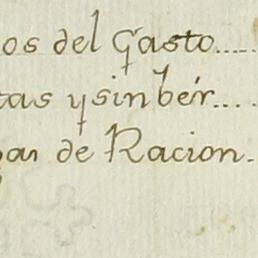 os del Gasto.....
tas y sinber....
gar de Racion.